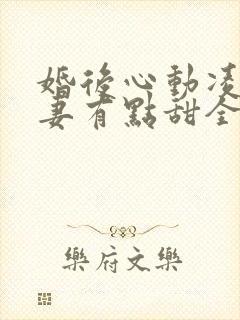 婚後心動凌
妻有點甜全
樂府文樂